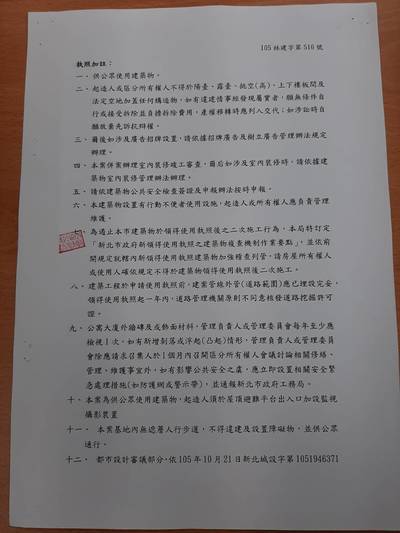 105 林建字第 516 號
執照加註：
一、供公眾使用建築物。
二、起造人或區分所有權人不得於陽臺、露臺、挑空(高)、上下樓板間及
法定空地加蓋任何構造物，如有違建情事經發現屬實者，願無條件自
行或接受拆除並負擔拆除費用，產權移轉時應列入交代；如涉訟時自
願放棄先訴抗辯權。
三、爾後如涉及廣告招牌設置，請依據招牌廣告及樹立廣告管理辦法規定
辦理。
四、本案併案辦理室內裝修竣工審查，爾后如涉及室內裝修時，請依據建
築物室內裝修管理辦法辦理。
五、請依建築物公共安全檢查簽證及申報辦法按時申報。
六、本建築物設置有行動不便者使用設施，起造人或所有權人應負責管理
維護。
為遏止本市建築物於領得使用執照後之二次施工行為，本局特訂定
「新北市政府新領得使用執照之建築物複查機制作業要點」，並依前
開規定就轄內新領得使用執照建築物加強稽查列管，請房屋所有權人
或使用人確依規定不得於建築物領得使用執照後二次施工。
八、建築工程於申請使用執照前，建案管線外管(道路範圍)應已埋設完妥，
領得使用執照起一年內，道路管理機關原則不同意核發道路挖掘許可
證。
九、公寓大廈外牆磚及或飾面材料，管理負責人或管理委員會每年至少應
檢視 1 次。如有新增剝落或浮起(凸起)情形，管理負責人或管理委員
會除應請求召集人於 1 個月內召開區分所有權人會議討論相關修繕、
管理、維護事宜外，如有影響公共安全之虞，應立即設置相關安全緊
急處理措施(如防護網或警示帶)，並通報新北市政府工務局。
十、本案為供公眾使用建築物，起造人須於屋頂避難平台出入口加設監視
攝影裝置
十一、本案基地內無遮簷人行步道，不得違建及設置障礙物，並供公眾
通行。
十二、都市設計審議部分，依 105 年 10 月 21 日新北城設字第 1051946371